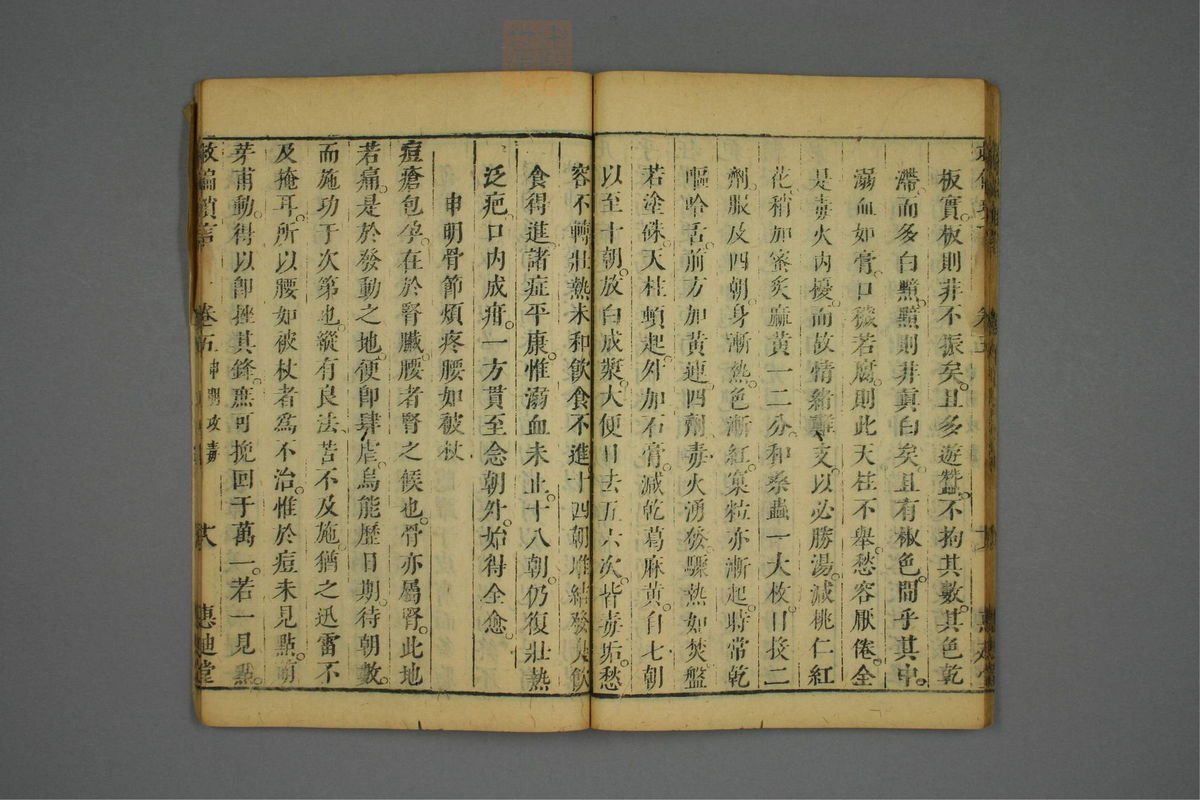 板實。板則非不振矣。且多遊蠶。不拘其數。其色乾
滯。而多白㸃。㸃則非真白矣。且有椒色。間乎其中。
溺血如膏。口穢若腐。則此天柱不舉。愁容厭倦。全
是毒火內擾。而故情緒難支。以必勝湯。減桃仁紅
花。稍加蜜炙麻黃一二分。和桑蟲一大枚。日投二
劑。服及四朝。身漸熱。色漸紅。窠粒亦漸起。時常乾
嘔哈舌。前方加黃連。四劑毒火湧發。驟熱如焚。盤
若塗硃。天柱頓起。外加石膏。減乾葛麻黃。自七朝
以至十朝。放白成漿。大便日去五六次。皆毒垢。愁
容不轉。壯熱未和。飲食不進。十四朝堆結發臭。飲
食得進。諸症平康。惟溺血未止。十八朝。仍復壯熱
泛疤。口內成疳。一方貫至念朝外。始得全愈。
申明骨節煩疼腰如被杖
痘瘡包孕。在於腎臟。腰者腎之候也。骨亦屬腎。此地
若痛。是於發動之地。便卽肆虐。烏能歷日期。待朝數。
而施功于次第也。縱有良法。苦不及施。猶之迅雷不
及掩耳。所以腰如被杖者。爲不治。惟於痘未見點。萌
芽甫動。得以卽挫其鋒。庶可挽回于萬一。若一見點。
救偏瑣言 卷五 申明攻毒 六 惠迪堂